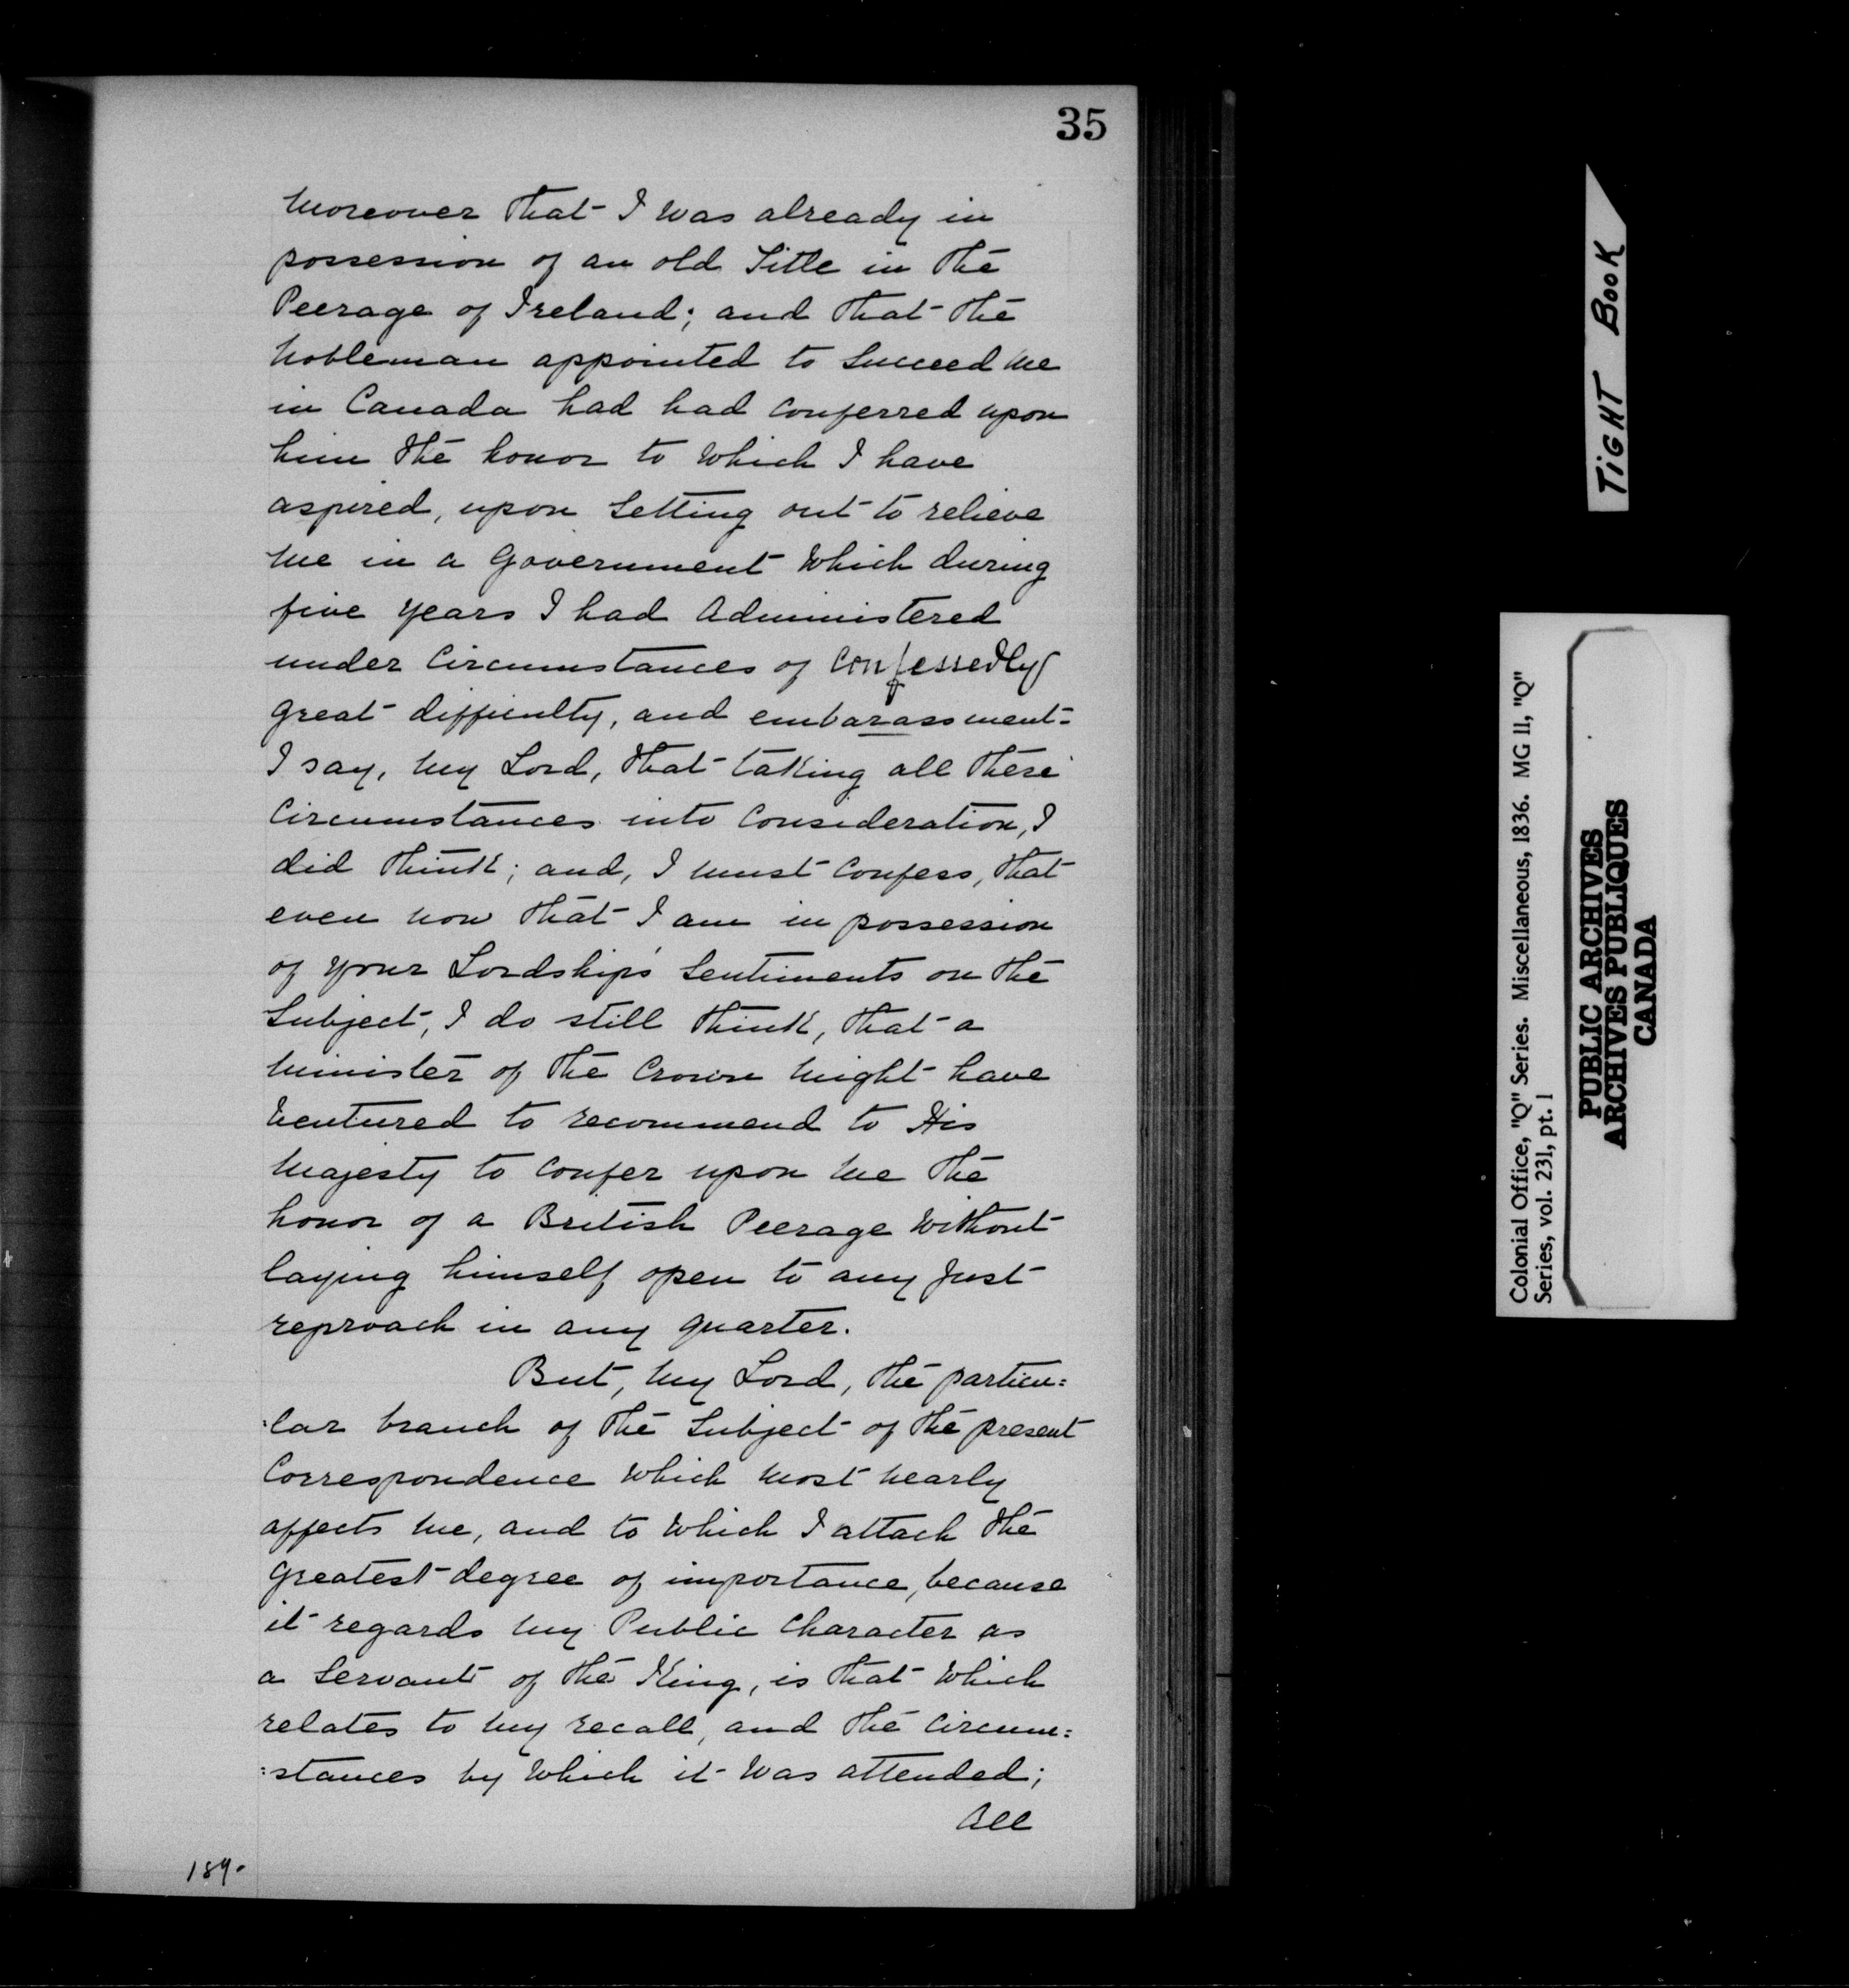 35
Moreover that I was already in
possession of an old Title in the
Peerage of Ireland; and that the
Nobleman appointed to succeed me
in Canada had had conferred upon
him the honor to which I have
aspired, upon setting out to relieve
me in a Government which during
five years I had administered
under circumstances of confessedly
great difficulty, and embarassment-
I say, my Lord, that taking all these
circumstances into consideration, I
did think; and, I must confess, that
even now that I am in possession
of your Lordship's sentiments on the
subject, I do still think, that a
Minister of the Crown might have
ventured to recommend to His
Majesty to confer upon me the
honor of a British Peerage without
laying himself open to any just
reproach in any quarter.
But, my Lord, the particu=
=lar branch of the subject of the present
correspondence which most nearly
affects me, and to which I attach the
greatest degree of importance, because
it regards my Public character as
a servant of the King, is that which
relates to my recall, and the circum=
=stances by which it was attended;
All
189.
TIGHT BOOK
Colonial Office, "Q" Series. Miscellaneous, 1836. MG 11, "Q"
Series, vol. 231, pt. 1
PUBLIC ARCHIVES
ARCHIVES PUBLIQUES
CANADA